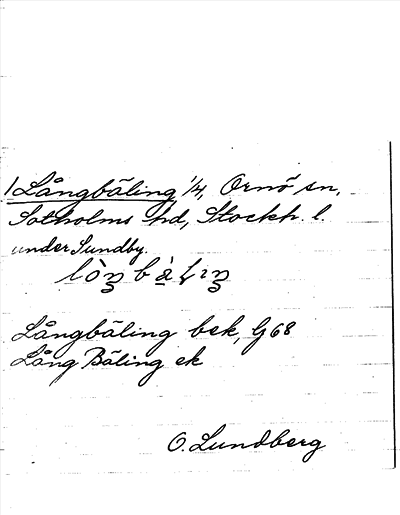 1 Långbäling 1/4, Ornö sn,
Sotholms hd, Stockh. l.
under Sundby.
Långbäling bek, G 68
Lång Bäling ek
O. Lundberg